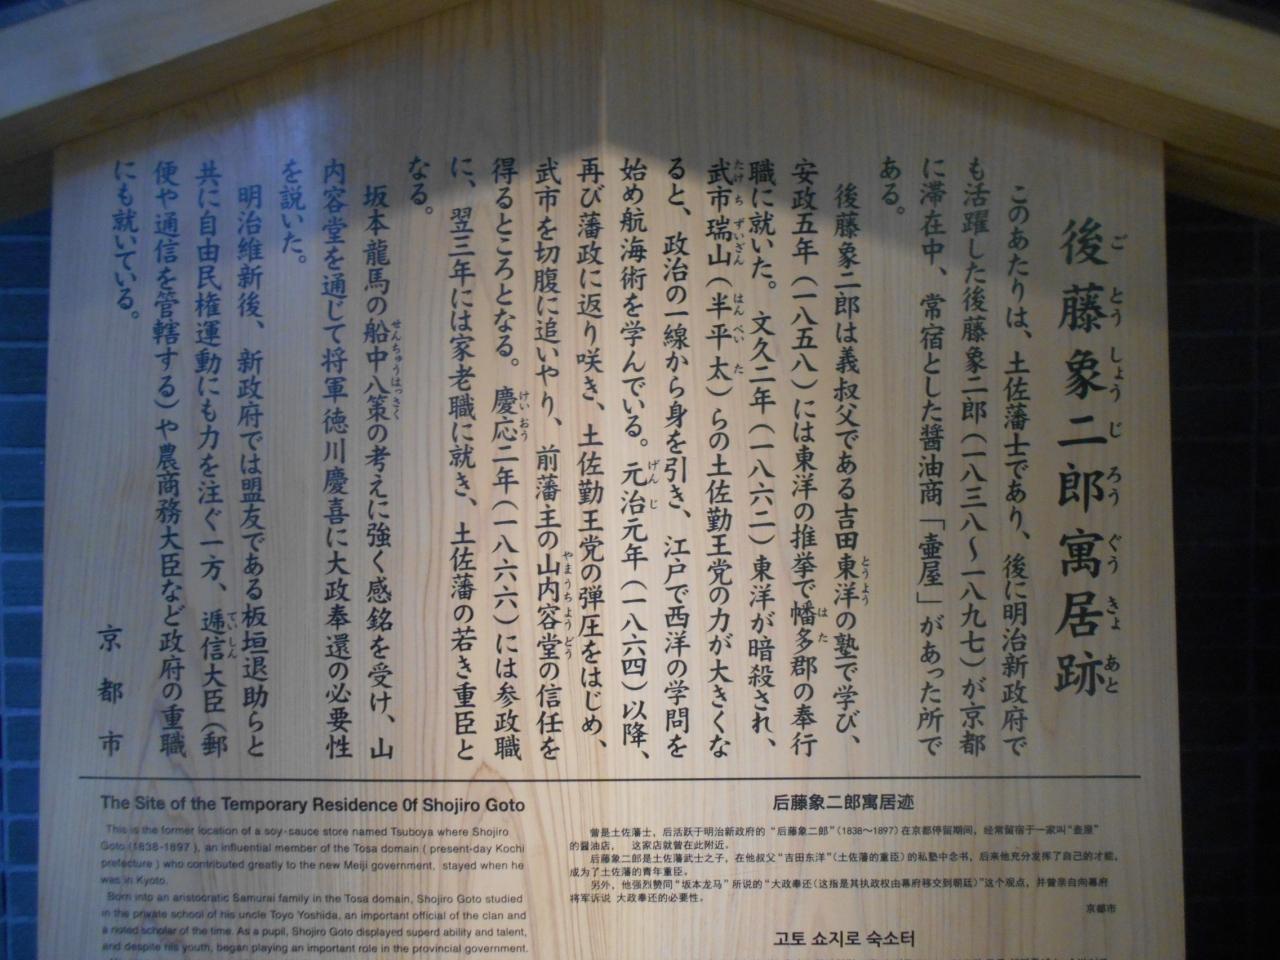 後藤象二郎寓居跡
ごとうしょうじろうぐうきょあと
このあたりは、土佐藩士であり、後に明治新政府で
も活躍した後藤象二郎（一八三八〜一八九七）が京都
に滞在中、常宿とした醤油商「壷屋」があった所で
ある。
後藤象二郎は義叔父である吉田東洋の塾で学び、
とうよう
安政五年（一八五八）には東洋の推挙で幡多郡の奉行
はた
職に就いた。文久二年（一八六二）東洋が暗殺され、
武市瑞山（半平太）らの土佐勤王党の力が大きくな
たけちずいざん はんぺいた
ると、政治の一線から身を引き、江戸で西洋の学問を
始め航海術を学んでいる。元治元年（一八六四）以降、
げんじ
再び藩政に返り咲き、土佐勤王党の弾圧をはじめ、
武市を切腹に追いやり、前藩主の山内容堂の信任を
やまうちようどう
得るところとなる。慶応二年（一八六六）には参政職
けいおう
に、翌三年には家老職に就き、土佐藩の若き重臣と
なる。
坂本龍馬の船中八策の考えに強く感銘を受け、山
せんちゅうはっさく
内容堂を通じて将軍徳川慶喜に大政奉還の必要性
を説いた。
明治維新後、新政府では盟友である板垣退助らと
共に自由民権運動にも力を注ぐ一方、逓信大臣（郵
ていしん
便や通信を管轄する）や農商務大臣など政府の重職
にも就いている。
京都市
The Site of the Temporary Residence Of Shojiro Goto
This is the former location of a soy-sauce store named Tsuboya where Shojiro
Goto (1838-1897 ), an influential member of the Tosa domain ( present-day Kochi
prefecture ) who contributed greatly to the new Meiji government, stayed when he
was in Kyoto.
Born into an aristocratic Samurai family in the Tosa domain, Shojiro Goto studied
in the private school of his uncle Toyo Yoshida, an important official of the clan and
a noted scholar of the time. As a pupil, Shojiro Goto displayed superd ability and talent,
and despite his youth, began playing an important role in the provincial government.
后藤象二郎寓居迹
曾是土佐藩士，后活跃于明治新政府的“后藤象二郎”（1838～1897）在京都停留期间，经常留宿于一家叫“壶屋”
的酱油店， 这家店就曾在此附近。
后藤象二郎是土佐藩武士之子，在他叔父“吉田东洋”（土佐藩的重臣）的私塾中念书，后来他充分发挥了自己的才能，
成为了土佐藩的青年重臣。
另外，他强烈赞同“坂本龙马”所说的“大政奉还（这指是其执政权由幕府移交到朝廷）”这个观点，并曾亲自向幕府
将军诉说 大政奉还的必要性。
京都市
고토 쇼지로 숙소터